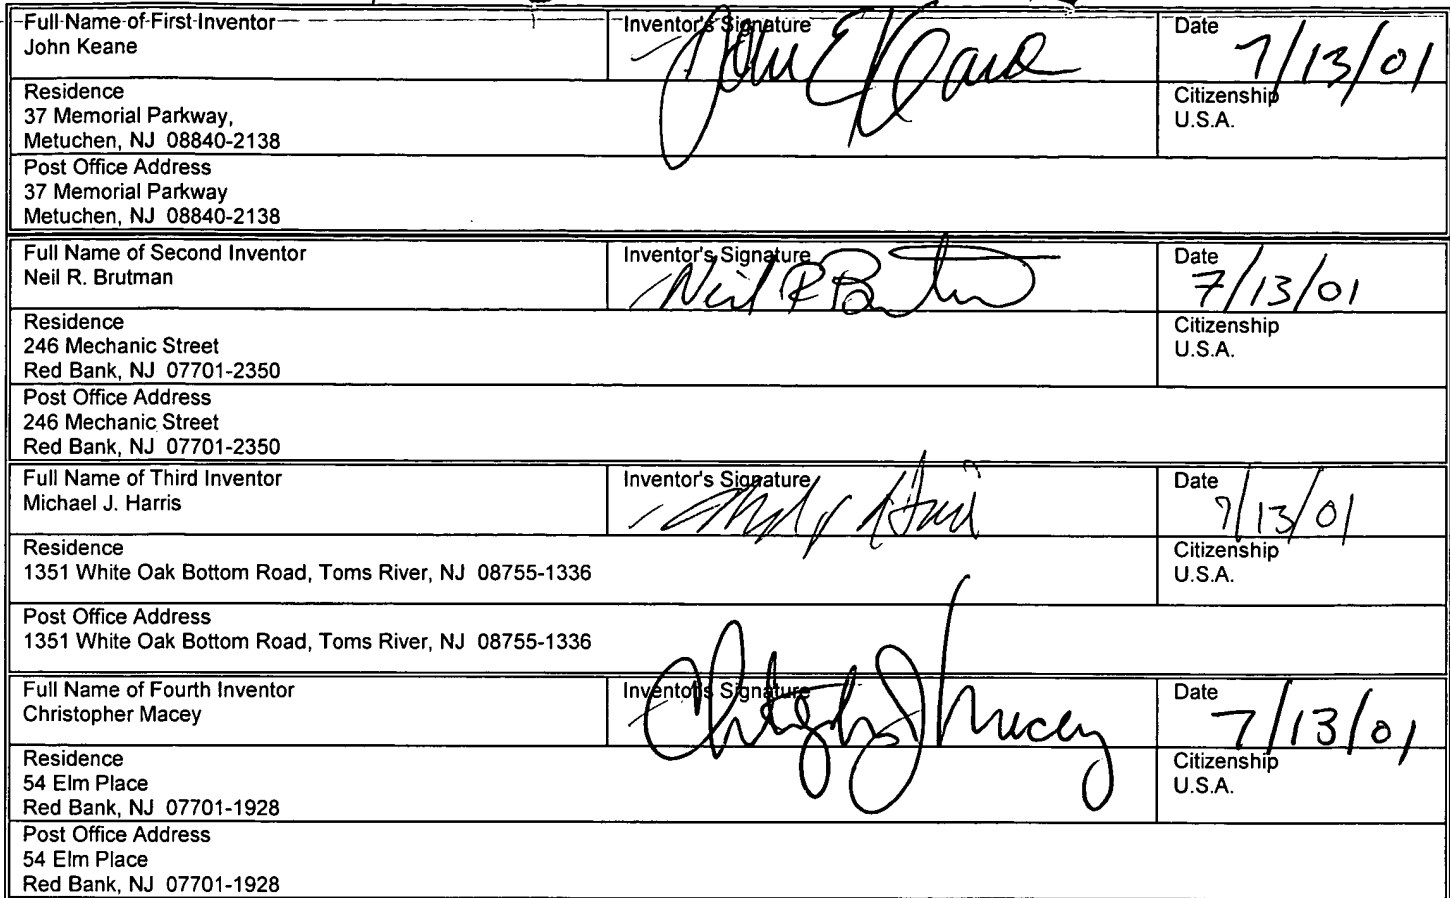 Full Name of First Inventor
John Keane
Inventor's Signature
John E Keane
Date
7/13/01
Residence
37 Memorial Parkway,
Metuchen, NJ 08840-2138
Citizenship
U.S.A.
Post Office Address
37 Memorial Parkway
Metuchen, NJ 08840-2138
Full Name of Second Inventor
Neil R. Brutman
Inventor's Signature
Neil R Brutman
Date
7/13/01
Residence
246 Mechanic Street
Red Bank, NJ 07701-2350
Citizenship
U.S.A.
Post Office Address
246 Mechanic Street
Red Bank, NJ 07701-2350
Full Name of Third Inventor
Michael J. Harris
Inventor's Signature
Date
7/13/01
Residence
1351 White Oak Bottom Road, Toms River, NJ 08755-1336
Citizenship
U.S.A.
Post Office Address
1351 White Oak Bottom Road, Toms River, NJ 08755-1336
Full Name of Fourth Inventor
Christopher Macey
Inventor's Signature
Christopher J Macey
Date
7/13/01
Residence
54 Elm Place
Red Bank, NJ 07701-1928
Citizenship
U.S.A.
Post Office Address
54 Elm Place
Red Bank, NJ 07701-1928